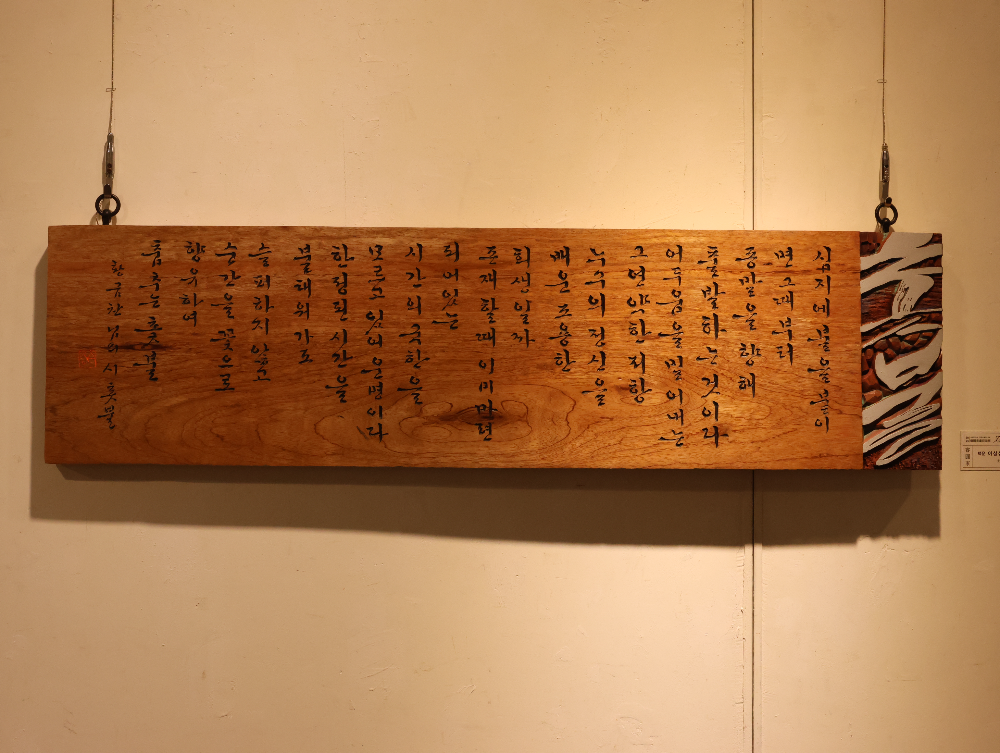 촛불
심지에 불을 붙이
면 그때부터
종말을 향해
출발하는 것이다
어두움을 밀어내는
그 연약한 저항
누구의 정신을
배운 조용한
희생일까
존재할때 이미 마련
되어있는
시간의 국한을
모르고 있어 운명이다
한정된 시간을
불태워가도
슬퍼하지 않고
순간을 꽃으로
향유하며
춤추는 촛불
황금찬님의 시 촛불